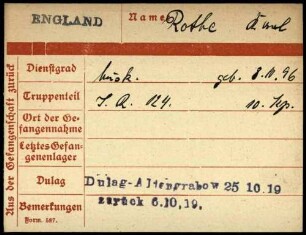 ENGLAND Name Rothe
Aus der Gefangenschaft zurück
Dienstgrad Musk. geb. 8.11.96
Truppenteil J. R. 124. 10. Kp.
Ort der Ge-
fangennahme
Letztes Gefan-
genenlager
Dulag Dulag-Altengrabow 25 10.19
zurück 6.10.19.
Bemerkungen
Form. 587.